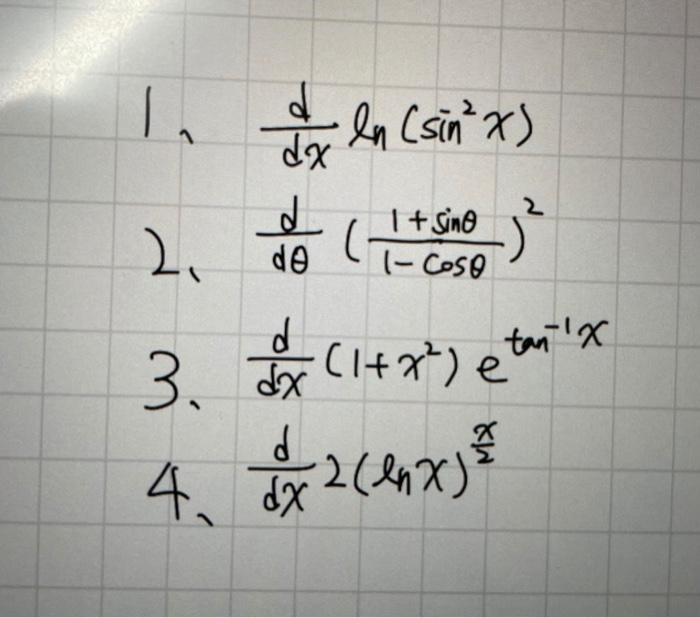 1、 d/dx ln (sin²x)
2、 d/dθ ((1+sinθ)/(1-cosθ))²
3、 d/dx (1+x²) e^(tan⁻¹x)
4、 d/dx 2(lnx)^(x/2)